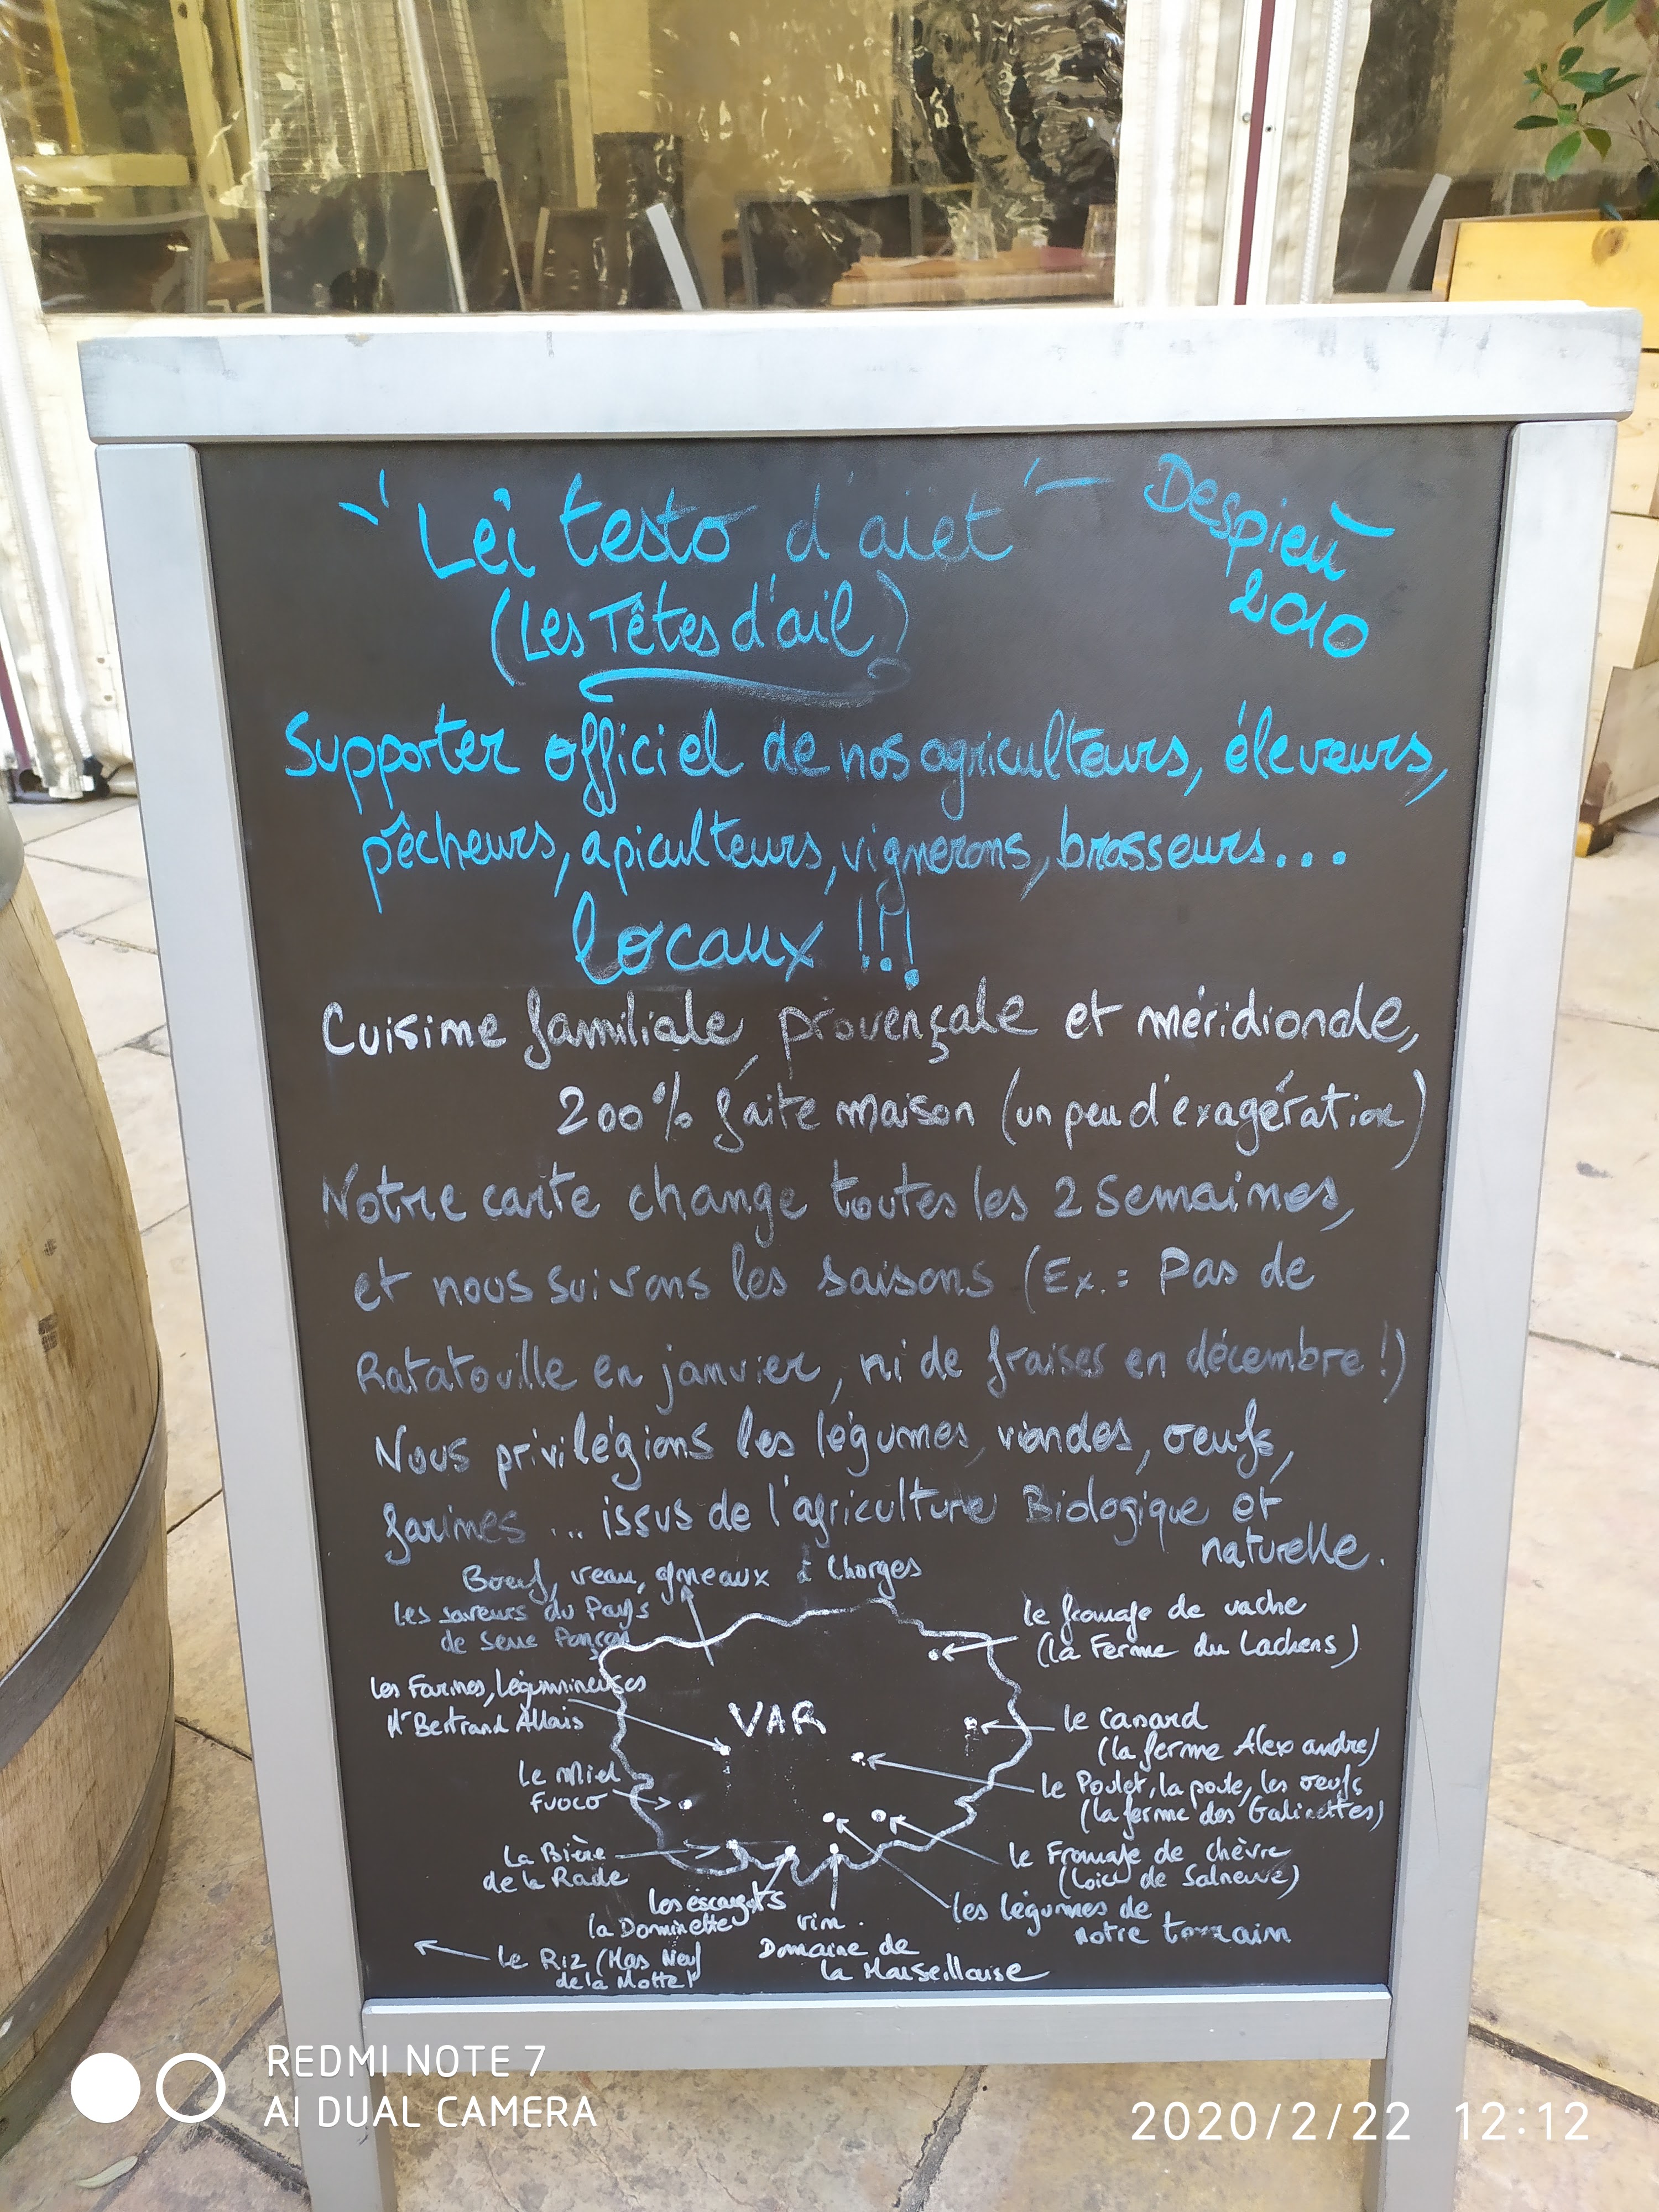 "Leï testo d'aiet" - Despieù
2010
(Les Têtes d'ail)
Supporter officiel de nos agriculteurs, éleveurs,
pêcheurs, apiculteurs, vignerons, brasseurs...
locaux !!!
Cuisine familiale, provençale et méridionale,
200% faite maison (un peu d'exagération)
Notre carte change toutes les 2 semaines,
et nous suivons les saisons (Ex.: Pas de
Ratatouille en janvier, ni de fraises en décembre!)
Nous privilégions les légumes, viandes, œufs,
farines ... issus de l'agriculture Biologique et
naturelle.
Bœuf, veau, agneaux à Chorges
les saveurs du Pays
de Serre Ponçon
le fromage de vache
(la Ferme du Lachens)
les Farines, Légumineuses
Mr Bertrand Allais
VAR
le canard
(la ferme Alexandre)
Le Miel
Fuoco
le Poulet, la poule, les œufs
(la ferme des Galinettes)
La Bière
de la Rade
le Fromage de chèvre
(Loïc de Salneuve)
les escargots
la Dominette
vin.
Domaine de
la Marseillaise
les légumes de
notre terrain
Le Riz (Mas Neuf
de la Motte)
REDMI NOTE 7
AI DUAL CAMERA
2020/2/22 12:12